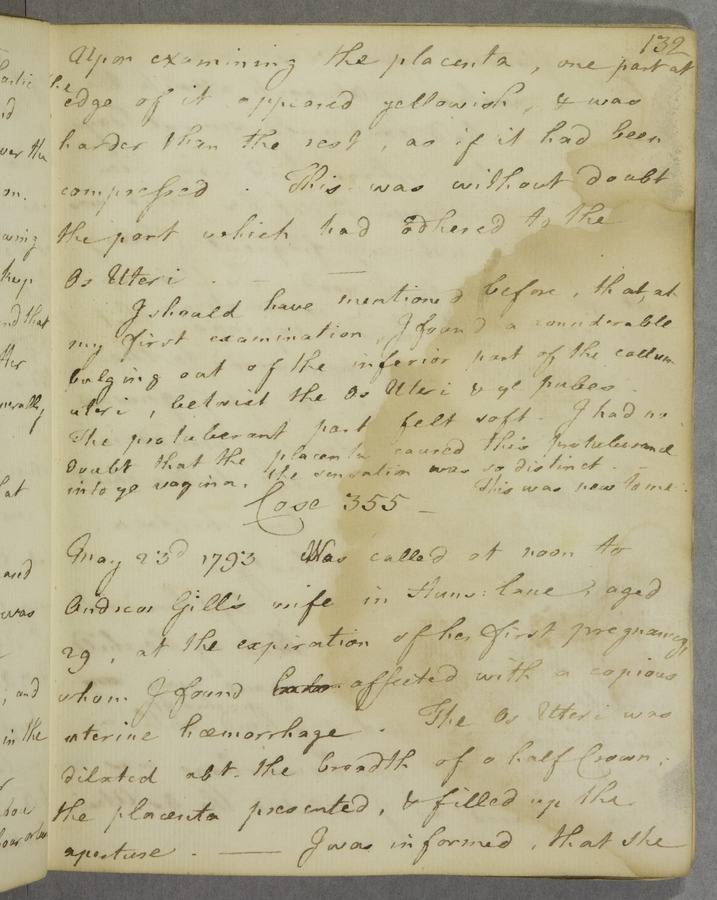 132
Upon examining the placenta, one part at
the edge of it appeared yellowish, & was
harder than the rest, as if it had been
compressed. This was without doubt
the part which had adhered to the
Os Uteri. —
I should have mentioned before, that, at
my first examination, I found a considerable
bulging out of the inferior part of the collum
uteri, betwixt the Os Uteri & ye pubes.
The protuberant part felt soft. I had no
doubt that the placenta caused this protuberance
into ye vagina, the sensation was so distinct. — This was new to me.
Case 355 —
May 23d 1793 Was called at noon to
Andrew Gill's wife in Huns: lane, aged
29, at the expiration of her first pregnancy,
whom I found affected with a copious
uterine hæmorrhage. The Os Uteri was
dilated abt. the breadth of a half Crown,
the placenta presented, & filled up the
aperture. — I was informed, that she